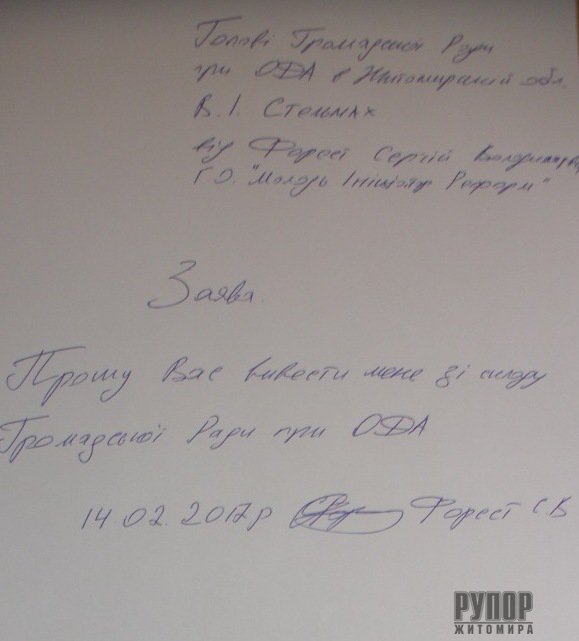 Голові Громадської Ради
при ОДА в Житомирській обл.
В.І. Стельмах
від Форест Сергій Володимирович
Г.О. "Молодь Ініціатор Реформ"
Заява.
Прошу Вас вивести мене зі складу
Громадської Ради при ОДА
14.02.2017р Форест С В
РУПОР
ЖИТОМИРА